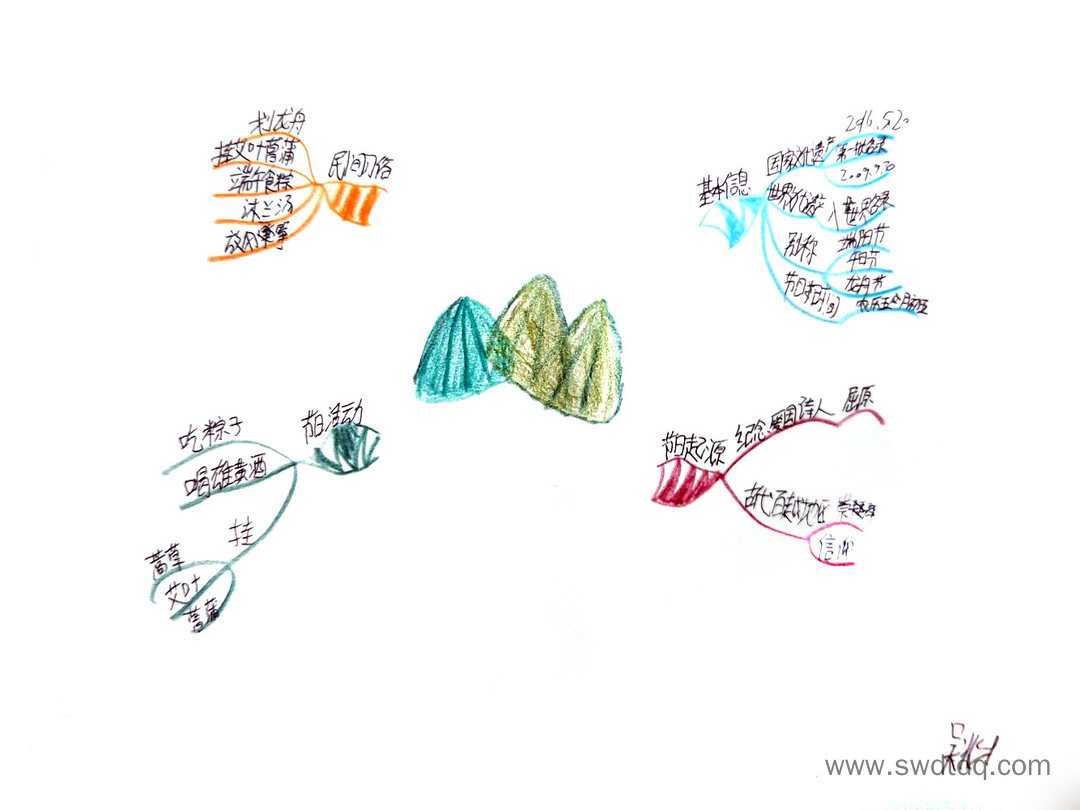 基本信息
国家文化遗产
第一批名录
2009.9.30
世界文化遗产
入世界名录
别称
端阳节
午日节
龙舟节
节日时间
农历五月初五
节日起源
纪念爱国诗人
屈原
古代百越地区
崇拜
信仰
节日活动
吃粽子
喝雄黄酒
挂
蒿草
艾叶
菖蒲
民间习俗
划龙舟
挂艾叶菖蒲
端午食粽
沐兰汤
www.swdtdq.com